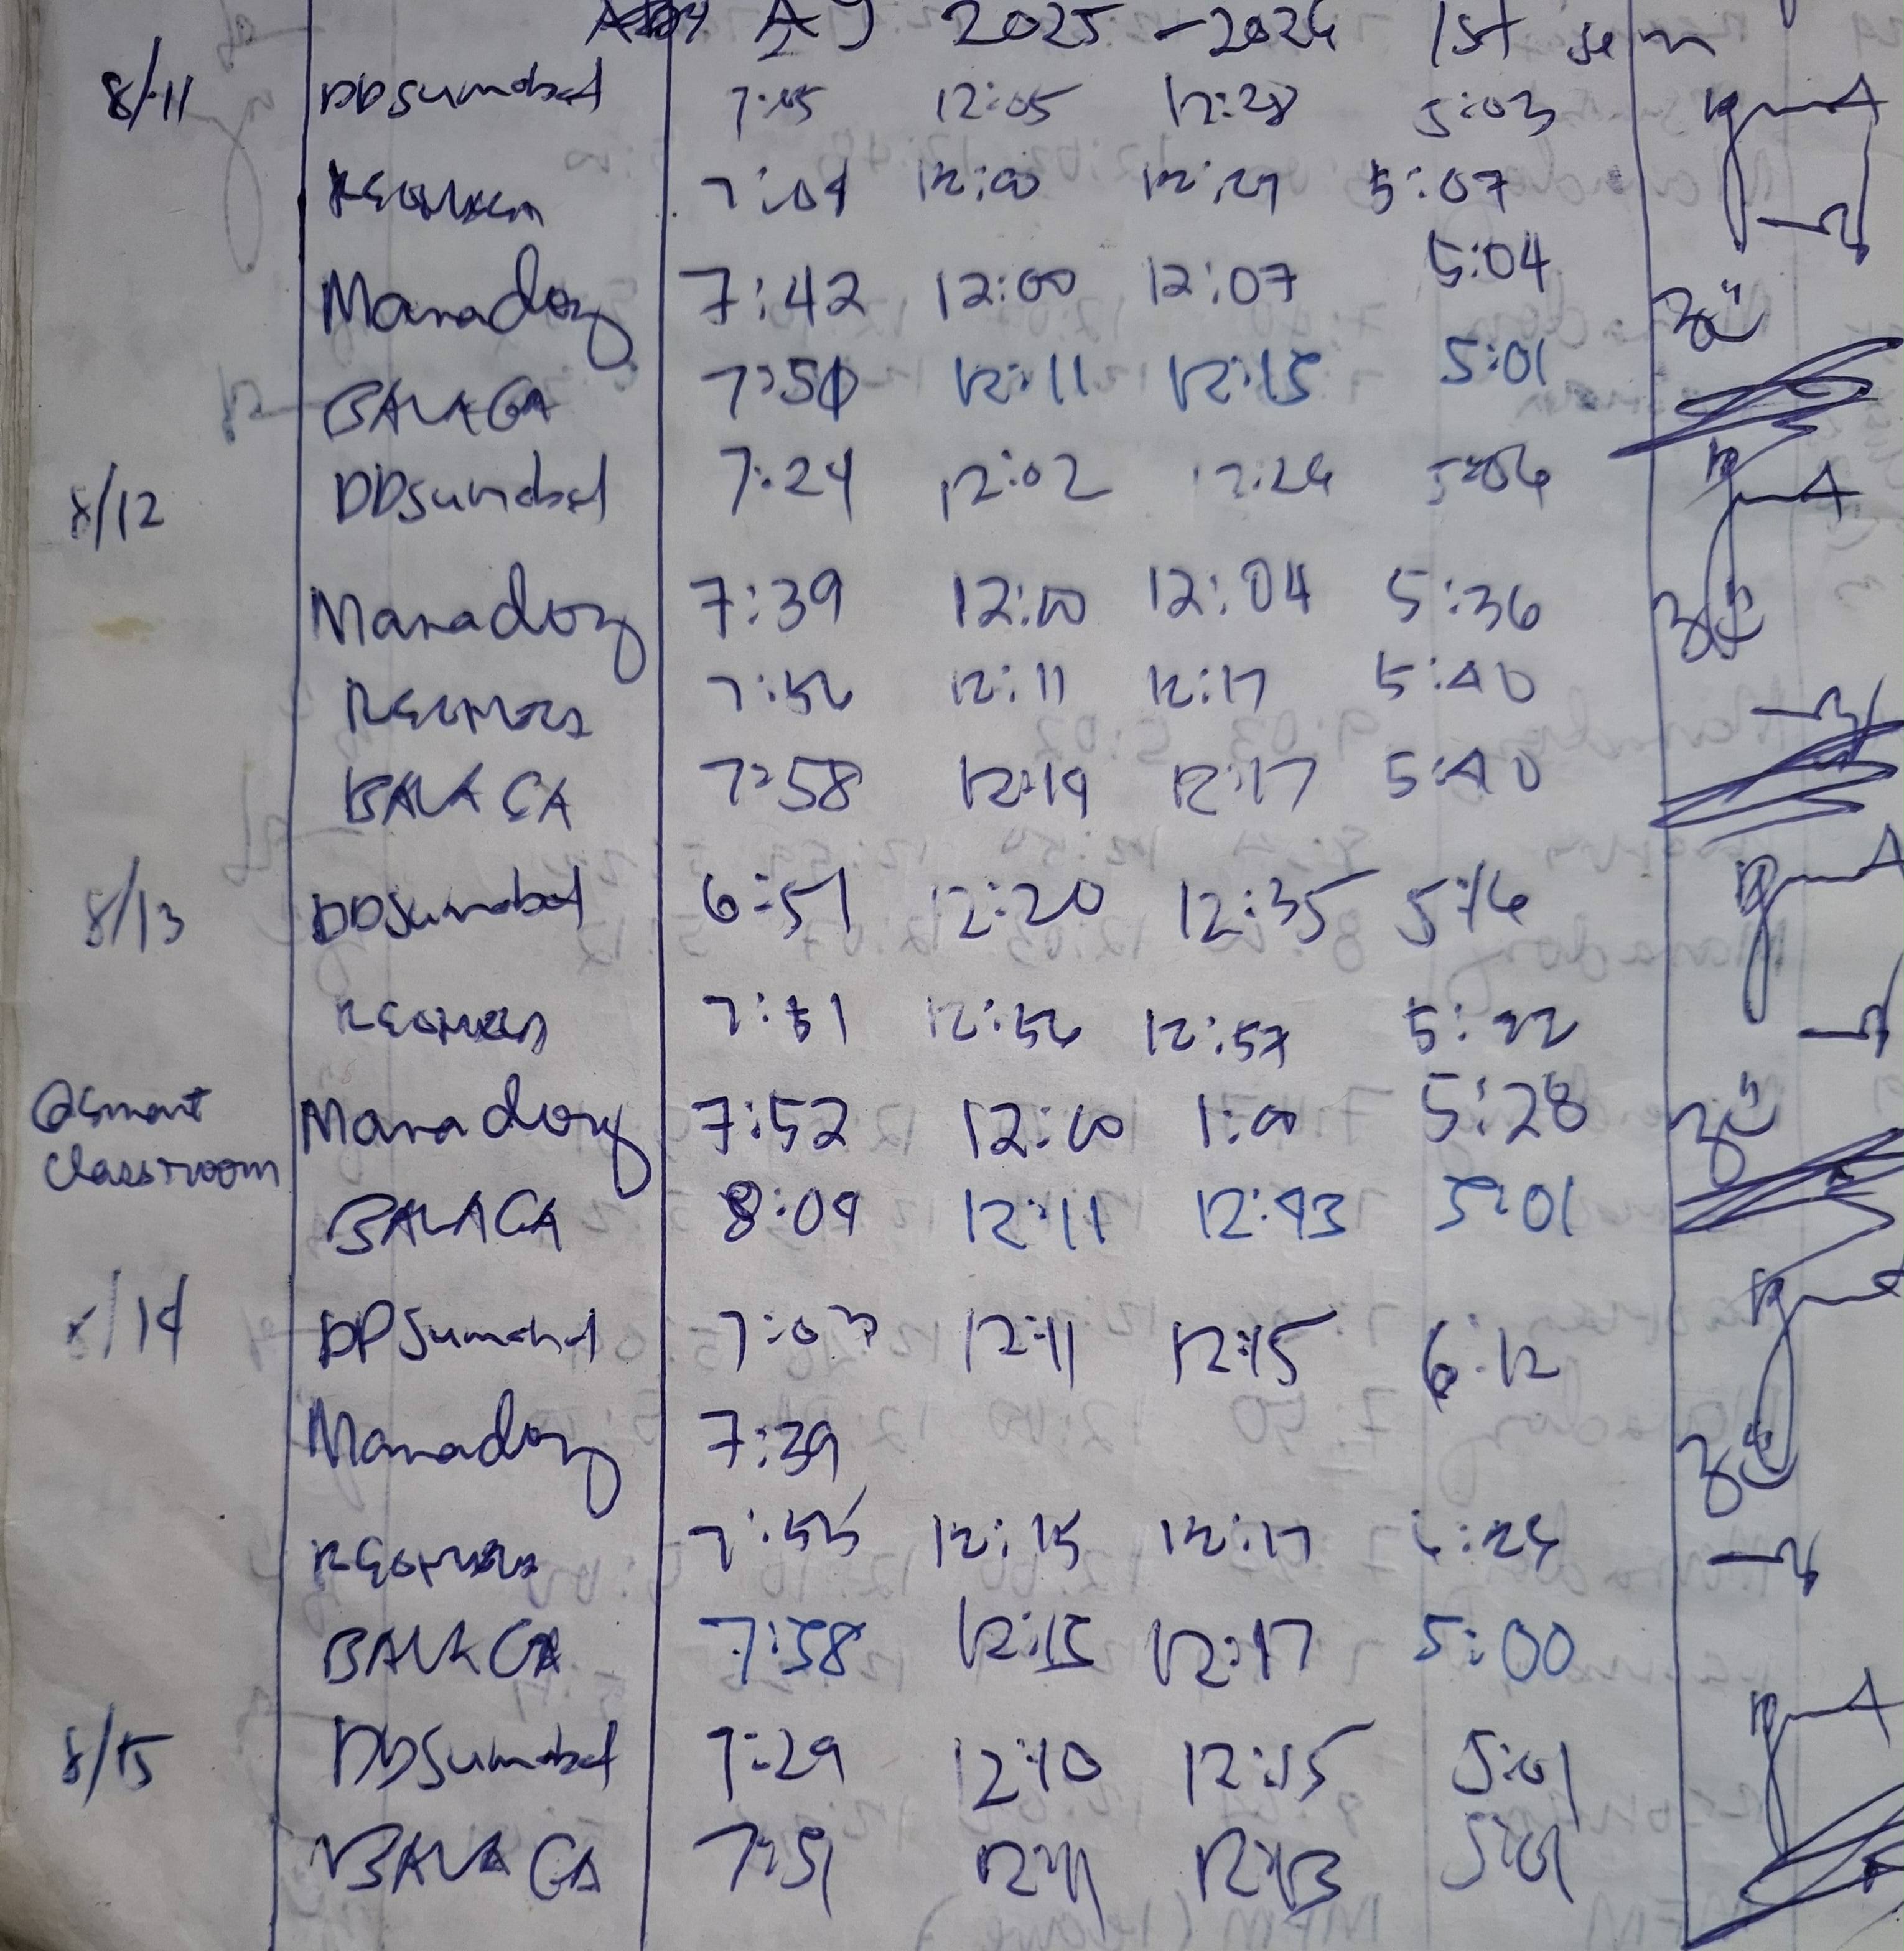 AY 2025-2026 1st sem
8/11 DDSumabat 12:05 12:28 5:03
12:00 12:27 5:07
Manadoy 7:42 12:00 12:07 5:04
BALAGA 7:50 12:11 12:15 5:01
8/12 DDSumabat 7:24 12:02 12:26 5:06
Manadoy 7:39 12:00 12:04 5:36
7:56 12:11 12:17 5:40
BALAGA 7:58 12:17 5:40
8/13 DDSumabat 6:51 12:20 12:35 5:16
7:51 12:56 12:57
Manadoy 7:52 12:00 1:00 5:28
@Smart
Classroom
BALAGA 8:09 12:11 12:43 5:01
8/14 DDSumabat 7:03 12:11 12:15 6:12
Manadoy 7:39
7:55 12:15 12:17
BALAGA 7:58 12:15 12:17 5:00
8/15 DDSumabat 7:29 12:10 12:15 5:01
BALAGA 7:51 12:11 12:13 5:01